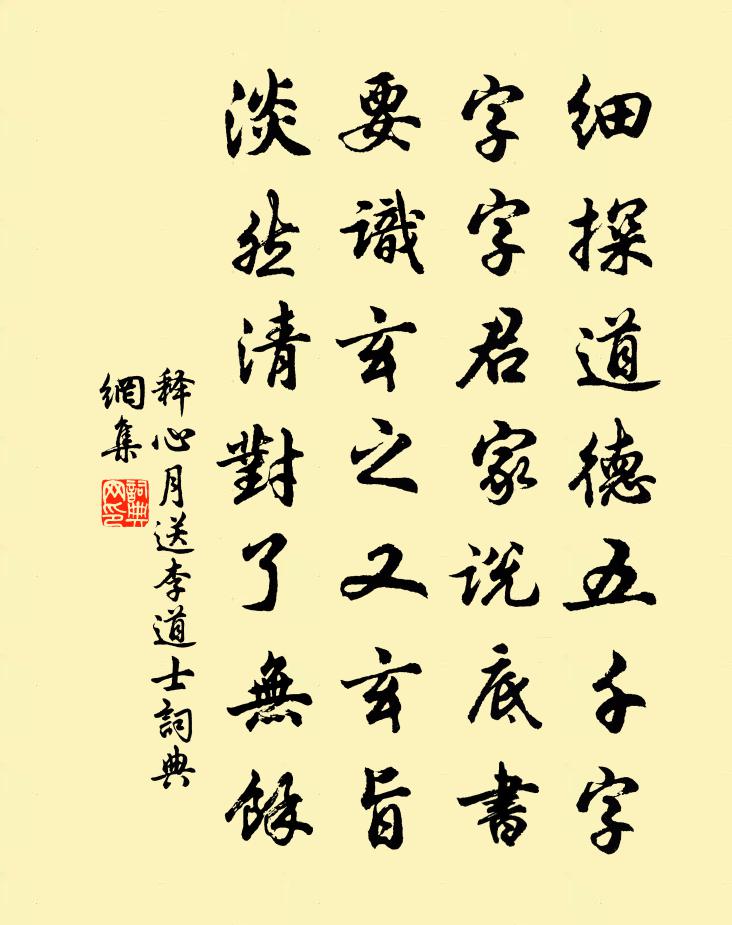 细探道德五千字
字字君家说底書
要識玄之又玄旨
淡然清對了無餘
释心月送李道士詞典
網集
詞典
网印